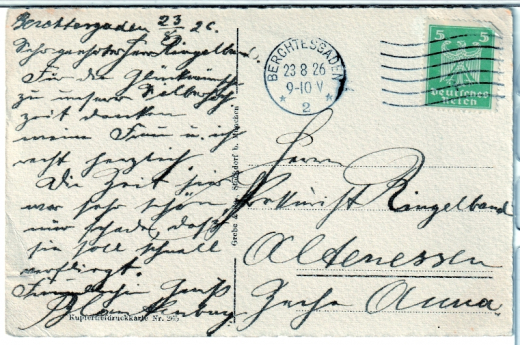 Berchtesgaden 23/8 26.
Sehr geehrter Herr Ringelband.
Für die Glückwünsche
zu unserer
zeit danken
meine Frau u. ich
recht herzlich.
Die Zeit hier
war sehr schön
nur schade, daß
sie so schnell
verfliegt.
Freundliche Grüße
Kupfertiefdruckkarte Nr. 265
BERCHTESGADEN
23 8 26
9-10 V
* 2 *
5 5
Deutsches
Reich
Herrn
Prokurist Ringelband
Altenessen
Zeche Anna